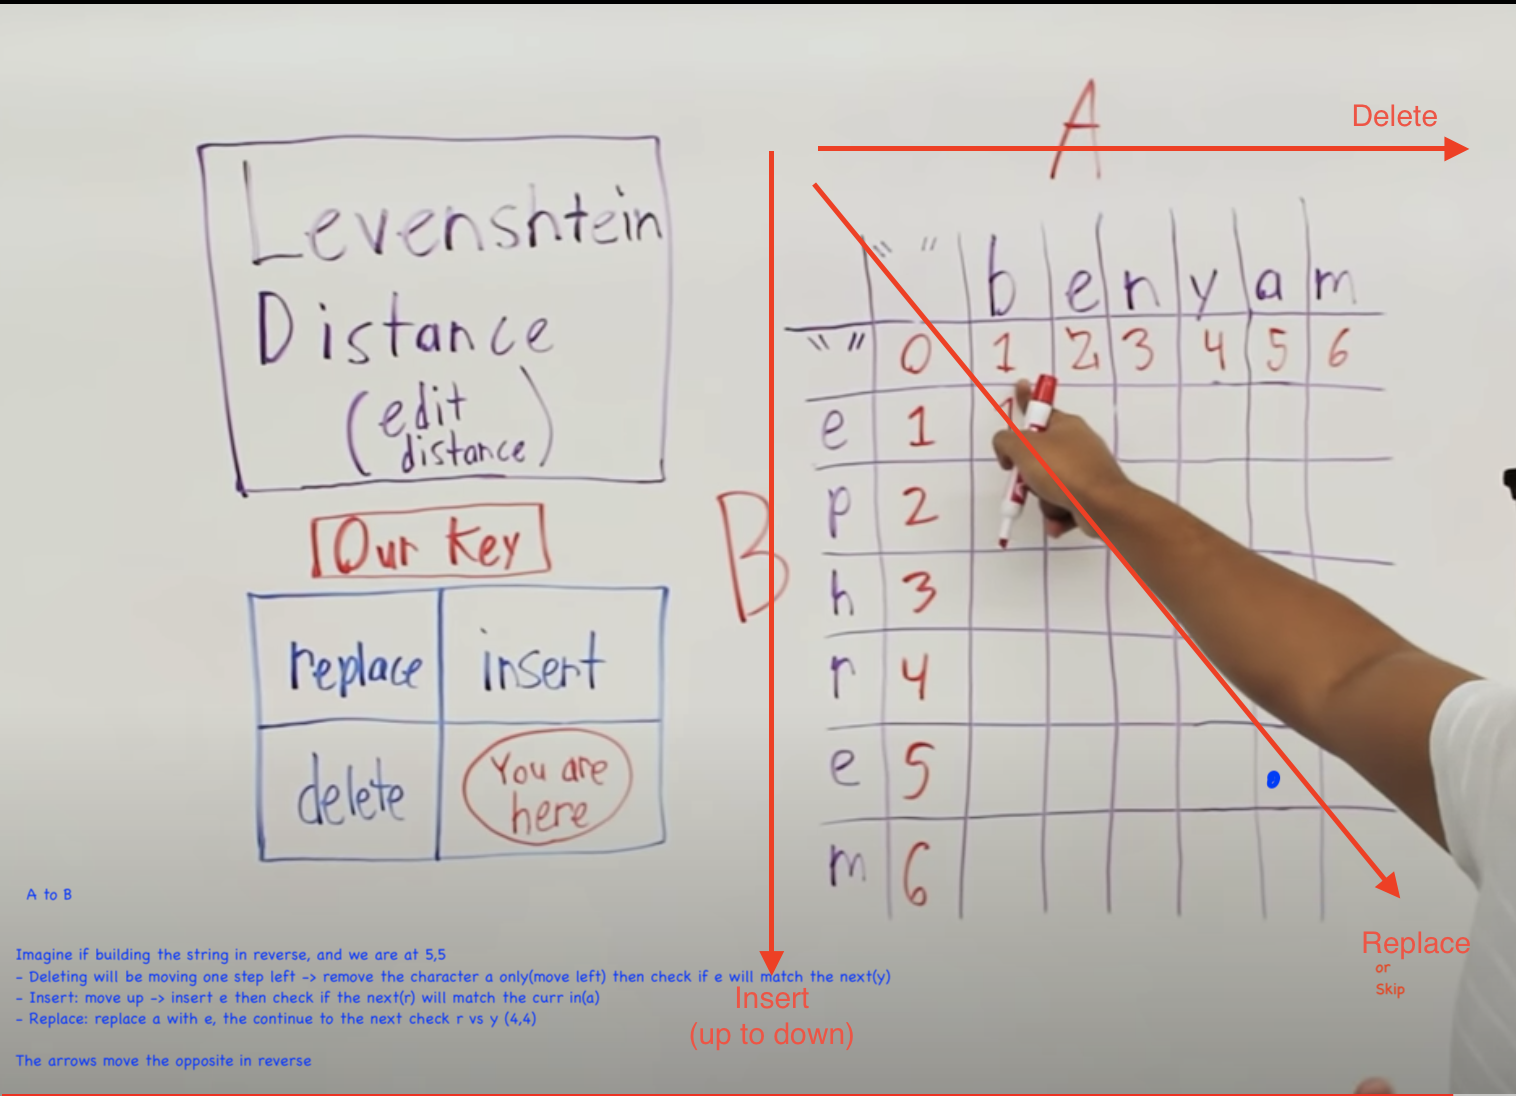 Levenshtein
Distance
(edit
distance)
Our Key
replace insert
delete You are
here
A
Delete
B
" " b e n y a m
" " 0 1 2 3 4 5 6
e 1 1
p 2
h 3
r 4
e 5
m 6
Insert
(up to down)
Replace
or
Skip
A to B
Imagine if building the string in reverse, and we are at 5,5
- Deleting will be moving one step left -> remove the character a only(move left) then check if e will match the next(y)
- Insert: move up -> insert e then check if the next(r) will match the curr in(a)
- Replace: replace a with e, the continue to the next check r vs y (4,4)
The arrows move the opposite in reverse